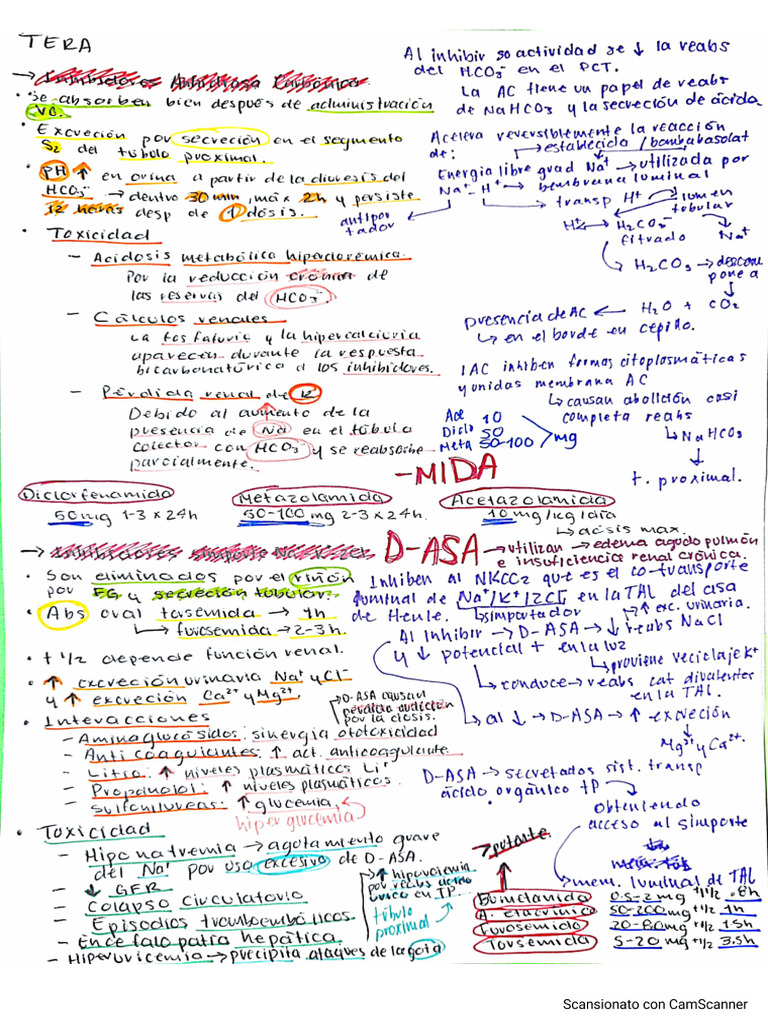 TERA
→ Inhibidores Anhidrasa Carbónica.
• Se absorben bien después de administración
VO.
• Excreción por secreción en el segmento
S2 del túbulo proximal.
• PH ↑ en orina a partir de la diuresis del
HCO3⁻ → dentro 30 min, máx 2h y persiste
12 horas desp de 1 dosis.
• Toxicidad
– Acidosis metabólica hiperclorémica.
Por la reducción crónica de
las reservas del HCO3⁻.
– Cálculos renales
La fosfaturia y la hipercalciuria
aparecen durante la respuesta
bicarbonatúrica a los inhibidores.
– Pérdida renal de K⁺
Debido al aumento de la
presencia de Na en el túbulo
colector con HCO3⁻ y se reabsorbe
parcialmente.
Al inhibir so actividad se ↓ la reabs
del HCO3⁻ en el PCT.
La AC tiene un papel de reabs
de NaHCO3 y la secreción de ácido
Acelera reversiblemente la reacción
de: → establecida / bomba basolat
Energia libre grad Na⁺ → utilizada por
Na⁺–H⁺ → membrana luminal
antipor
tador
→ transp H⁺ → lumen
tubular
H⁺ → H2CO3⁻
filtrado Na⁺
→ H2CO3 → descom
pone a
presencia de AC ← H2O + CO2
↳ en el borde en cepillo.
IAC inhiben formas citoplasmáticas
y unidas membrana AC
↳ causan abolición casi
completa reabs
↳ NaHCO3
t. proximal.
Ace 10
Diclo 50
Meta 50-100 mg
–MIDA
Diclorfenamida Metazolamida Acetazolamida
50 mg 1-3 x 24h 50-100 mg 2-3 x 24h. 10 mg/kg/día
↳ dosis max.
D-ASA → utilizan → edema agudo pulmón
e insuficiencia renal crónica.
• Son eliminados por el riñón
por FG y secreción tubular.
• Abs oral torsemida → 1h
↳ furosemida → 2-3h.
• t 1/2 depende función renal.
• ↑ excreción urinaria Na⁺ y Cl⁻
y ↑ excreción Ca²⁺ y Mg²⁺.
Inhiben al NKCC2 que es el co-transporte
luminal de Na⁺/K⁺/2Cl⁻ en la TAL del asa
de Henle. ↳ simportador ↑ exc. urinaria.
Al inhibir → D-ASA → ↓ reabs NaCl
y ↓ potencial + en la luz
↳ proviene reciclaje K⁺
↳ conduce → reabs cat divalentes
en la TAL.
↳ al ↓ → D-ASA → ↑ excreción
Mg²⁺ y Ca²⁺.
• Interacciones
→ D-ASA causan
por la diosis.
– Aminoglucósidos: sinergia ototoxicidad
– Anticoagulantes: ↑ act. anticoagulante.
– Litio: ↑ niveles plasmáticos Li⁺
– Propanolol: ↑ niveles plasmáticos.
– Sulfonilureas: ↑ glucemia.
hiperglucemia
D-ASA → secretados sist. transp
ácido orgánico tP
Obteniendo
acceso al simporte
→ mem. luminal de TAL
• Toxicidad
– Hiponatremia → agotamiento grave
del Na⁺ por uso excesivo de D-ASA.
– ↓ GFR
– Colapso circulatorio
– Episodios tromboembólicos.
– Encefalopatía hepática.
– Hiperuricemia → precipita ataques de la gota
→ ↑ hipovolemia
por reabs ácido
úrico en TP.
túbulo
proximal
→ potente.
Bumetanida 0.5-2 mg t1/2 .8h
A. etacrínico 50-200 mg t1/2 1h
Furosemida 20-80 mg t1/2 1.5h
Torsemida 5-20 mg t1/2 3.5h
Scansionato con CamScanner